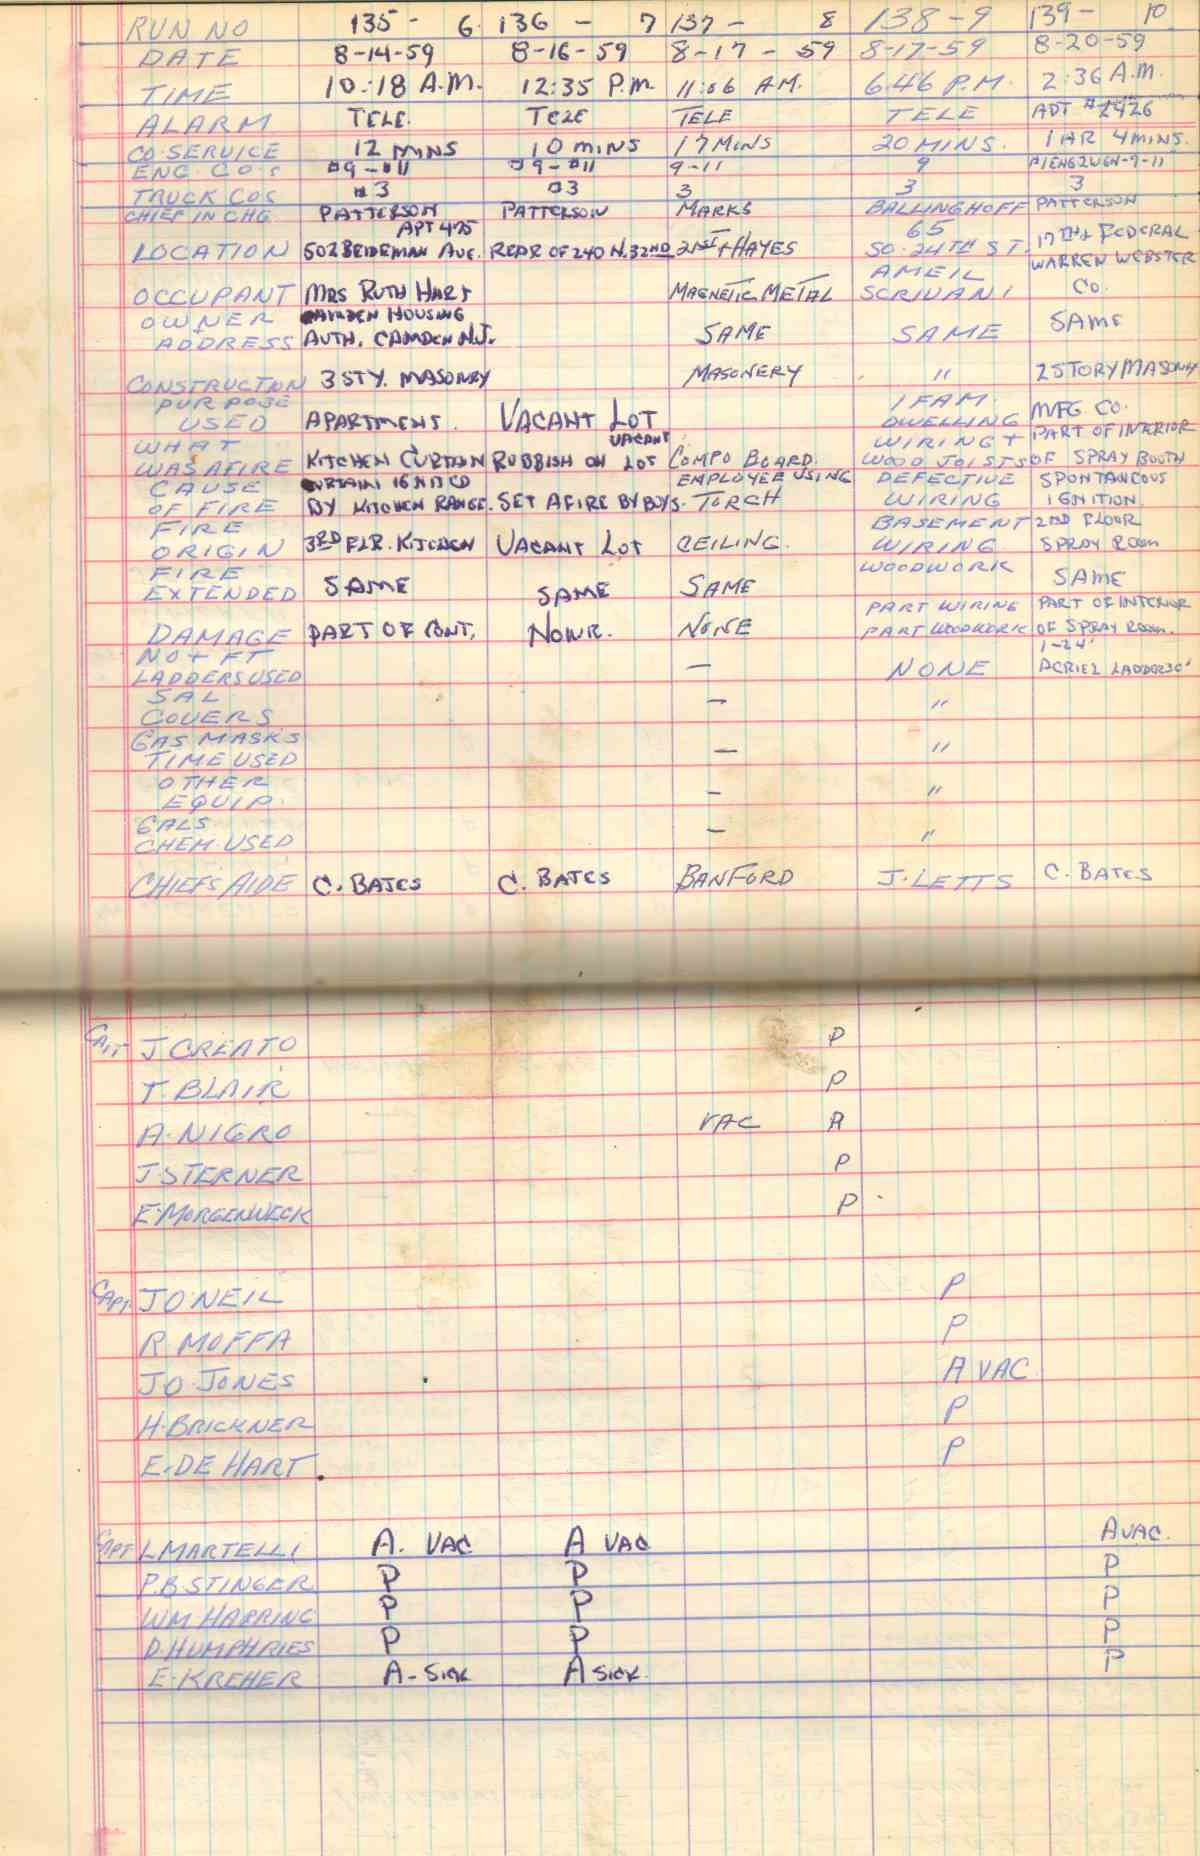 RUN NO 135 - 6 136 - 7 137 - 8 138 - 9 139 - 10
DATE 8-14-59 8-16-59 8-17-59 8-17-59 8-20-59
TIME 10:18 A.M. 12:35 P.M. 11:06 AM. 6:46 P.M. 2:36 A.M.
ALARM TELE. TELE TELE TELE ADT #2426
CO. SERVICE 12 MINS 10 MINS 17 MINS 20 MINS. 1 HR 4 MINS.
ENG. CO.S #9-#11 #9-#11 9-11 9
TRUCK COS #3 #3 3 3 3
CHIEF IN CHG PATTERSON PATTERSON MARKS BALLINGHOFF PATTERSON
APT 475 65 17TH & FEDERAL
LOCATION 502 BEIDEMAN AVE. REAR OF 240 N. 32ND 21ST & HAYES SO. 24TH ST.
AMEIL WARREN WEBSTER
OCCUPANT MRS RUTH HART MAGNETIC METAL SCRIVANI CO.
OWNER CAMDEN HOUSING
ADDRESS AUTH. CAMDEN N.J. SAME SAME SAME
CONSTRUCTION 3 STY. MASONRY MASONERY " 2 STORY MASONRY
PURPOSE 1 FAM.
USED APARTMENT. VACANT LOT DWELLING MFG. CO.
WHAT VACANT WIRING + PART OF INTERIOR
WAS AFIRE KITCHEN CURTAIN RUBBISH ON LOT COMPO BOARD. WOOD JOISTS OF SPRAY BOOTH
CAUSE CURTAIN IGNITED EMPLOYEE USING DEFECTIVE SPONTANEOUS
OF FIRE BY KITCHEN RANGE. SET AFIRE BY BOYS. TORCH WIRING IGNITION.
FIRE BASEMENT 2ND FLOOR
ORIGIN 3RD FLR. KITCHEN VACANT LOT CEILING. WIRING. SPRAY ROOM
FIRE WOODWORK
EXTENDED SAME SAME SAME SAME
PART WIRING PART OF INTERIOR
DAMAGE PART OF CONT. NONE. NONE PART WOODWORK OF SPRAY ROOM.
NO + FT 1-24'
LADDERS USED — NONE AERIEL LADDER 30'
SAL
COVERS — "
GAS MASKS
TIME USED — "
OTHER
EQUIP. — "
GALS
CHEM. USED — "
CHIEFS AIDE C. BATES C. BATES BANFORD J. LETTS C. BATES
CAPT J. CREATO P
T. BLAIR P
A. NIGRO VAC A
J. STERNER P
E. MORGENWECK P
CAPT. J O'NEIL P
R. MOFFA P
J O. JONES A VAC.
H. BRICKNER P
E. DE HART P
CAPT L MARTELLI A. VAC A VAC A VAC.
P.B. STINGER P P P
WM HARRING P P P
D. HUMPHRIES P P P
E. KREHER A-SICK A SICK. P